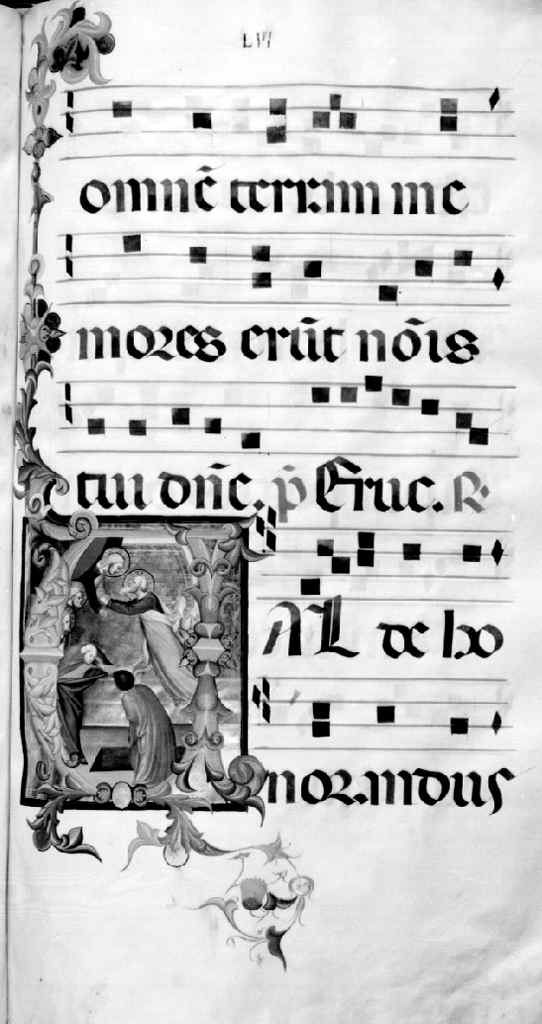 LVI
omnē terram me
mores erūt nōis
tui dñe. p̄ Eruc. R.
AL de ho
norandus